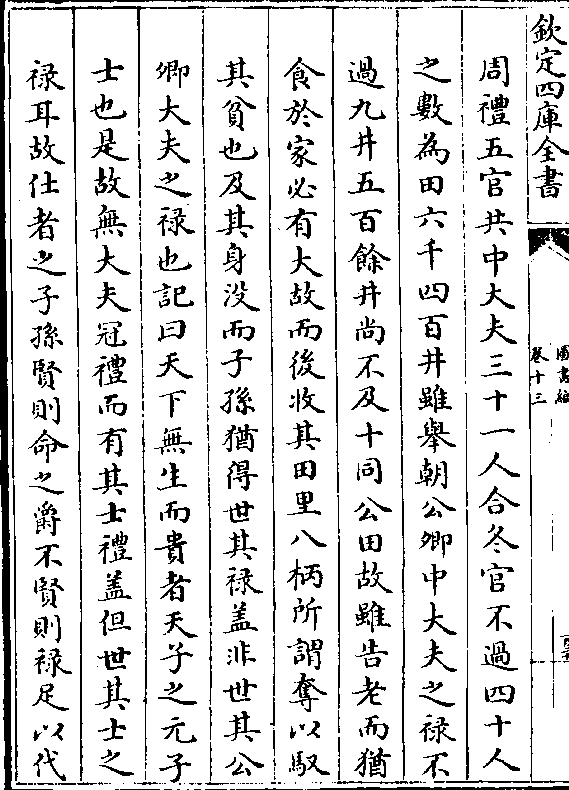 欽定四庫全書
圖書編
卷十三
周禮五官共中大夫三十一人合冬官不過四十人
之數為田六千四百井雖舉朝公卿中大夫之祿不
過九井五百餘井尚不及十同公田故雖告老而猶
食於家必有大故而後收其田里八柄所謂奪以馭
其貧也及其身没而子孫猶得世其祿盖非世其公
卿大夫之祿也記曰天下無生而貴者天子之元子
士也是故無大夫冠禮而有其士禮盖但世其士之
祿耳故仕者之子孫賢則命之爵不賢則祿足以代